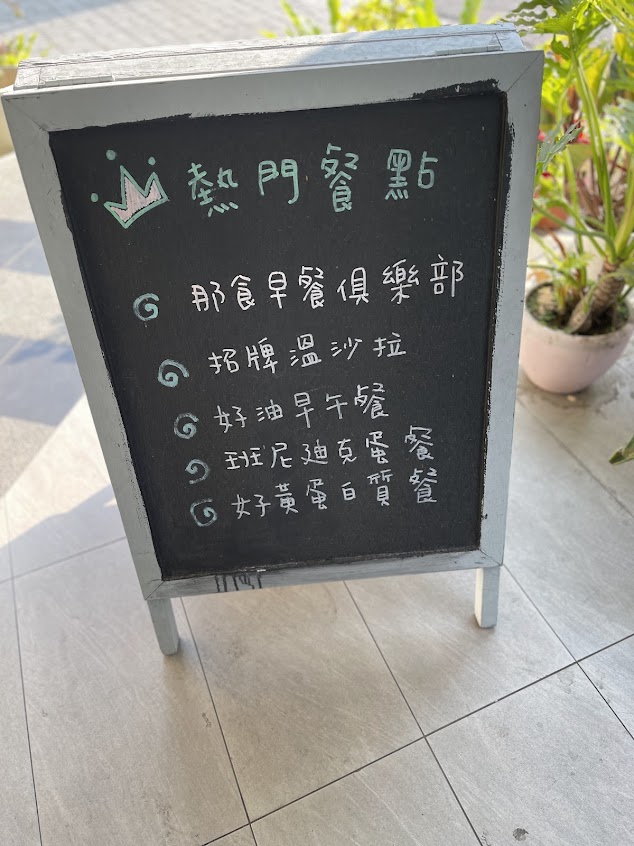 熱門餐點
那食早餐俱樂部
招牌溫沙拉
好油早午餐
班尼迪克蛋餐
好黃蛋白質餐